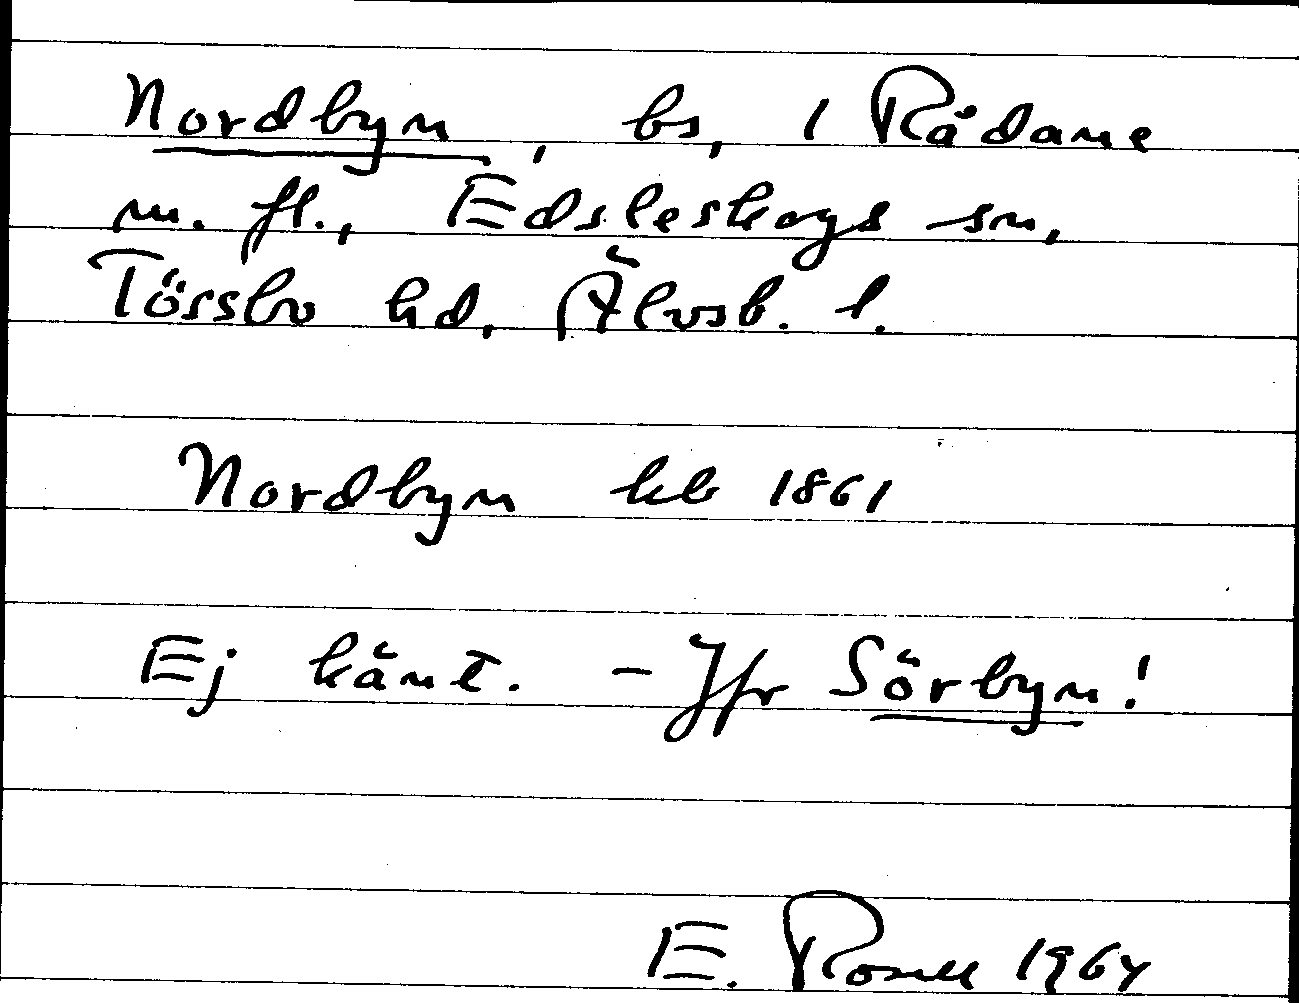 Nordbyn, bs, 1 Rådane
m. fl., Edsleskogs sn,
Tössbo hd, Älvsb. l.
Nordbyn hb 1861
Ej känt. - Jfr Sörbyn!
E. 1964